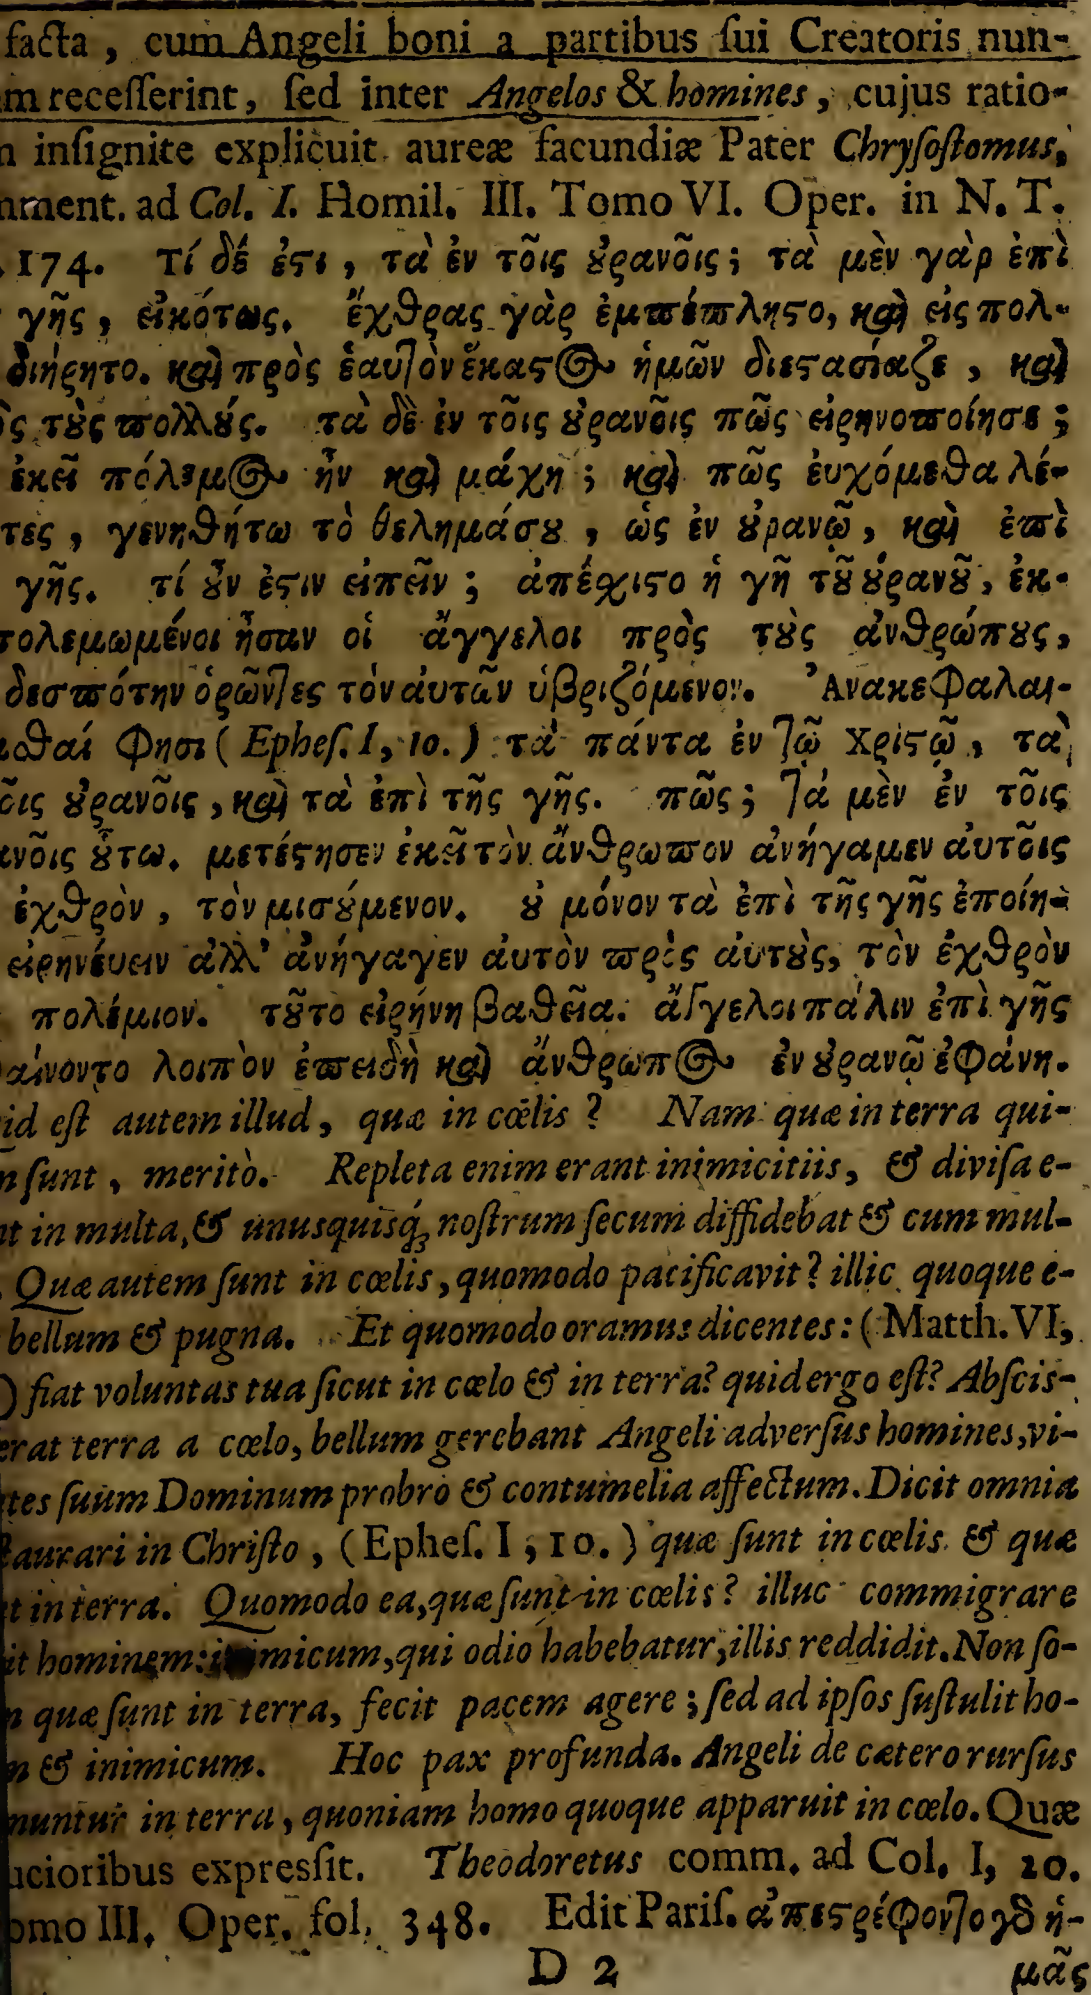 facta, cum Angeli boni a partibus ſui Creatoris nun-
m receſſerint, ſed inter Angelos & homines, cujus ratio-
n inſignite explicuit aureæ facundiæ Pater Chryſoſtomus,
ment. ad Col. I. Homil. III. Tomo VI. Oper. in N. T.
174. τί δέ ἐϛι, τὰ ἐν τοῖς ȣ̓ρανοῖς; τὰ μὲν γὰρ ἐπὶ
γῆς, εἰκότως. ἔχθρας γὰρ ἐμπέπληϛο, καὶ εἰς πολ-
διήρητο. καὶ πρὸς ἑαυτὸν ἕκαϛος ἡμῶν διεϛασίαζε, καὶ
ς τȣ̀ς πολλȣ́ς. τὰ δὲ ἐν τοῖς ȣ̓ρανοῖς πῶς εἰρηνοποίησε;
ἐκεῖ πόλεμος ἦν καὶ μάχη; καὶ πῶς ἐυχόμεθα λέ-
τες, γενηθήτω τὸ θελημάσȣ, ὡς ἐν ȣ̓ρανῷ, καὶ ἐπὶ
γῆς. τί ȣ̓͂ν ἐϛιν εἰπεῖν; ἀπέχιϛο ἡ γῆ τȣ͂ ȣ̓ρανȣ͂, ἐκ-
πολεμωμένοι ἦσαν οἱ ἄγγελοι πρὸς τȣ̀ς ἀνθρώπȣς,
δεσπότην ὁρῶντες τὸν ἀυτῶν ὑβριζόμενον. Ἀνακεφαλαι-
σθαί φησι (Epheſ. I, 10.) τὰ πάντα ἐν τῷ Χριϛῷ, τὰ
οῖς ȣ̓ρανοῖς, καὶ τὰ ἐπὶ τῆς γῆς. πῶς; τά μὲν ἐν τοῖς
ανοῖς ȣ̔́τω. μετέϛησεν ἐκεῖ τὸν ἄνθρωπον ἀνήγαμεν ἀυτοῖς
ἐχθρὸν, τὸν μισȣ́μενον. ȣ̓ μόνον τὰ ἐπὶ τῆς γῆς ἐποίη-
εἰρηνέυειν ἀλλ' ἀνήγαγεν ἀυτὸν πρὸς ἀυτȣ̀ς, τὸν ἐχθρὸν
πολέμιον. τȣ͂το εἰρήνη βαθεῖα. ἄγγελοι πάλιν ἐπὶ γῆς
αίνοντο λοιπὸν ἐπειδὴ καὶ ἄνθρωπος ἐν ȣ̓ρανῷ ἐφάνη.
id eſt autem illud, quæ in cœlis? Nam quæ in terra qui-
m ſunt, meritò. Repleta enim erant inimicitiis, & diviſa e-
nt in multa, & unusquisq; noſtrum ſecum diffidebat & cum mul-
Quæ autem ſunt in cœlis, quomodo pacificavit? illic quoque e-
bellum & pugna. Et quomodo oramus dicentes: (Matth. VI,
) fiat voluntas tua ſicut in cœlo & in terra? quid ergo eſt? Abſcis-
erat terra a cœlo, bellum gerebant Angeli adverſus homines, vi-
tes ſuum Dominum probro & contumelia affectum. Dicit omnia
ſtaurari in Chriſto, (Epheſ. I, 10.) quæ ſunt in cœlis & quæ
t in terra. Quomodo ea, quæ ſunt in cœlis? illuc commigrare
it hominem: inimicum, qui odio habebatur, illis reddidit. Non ſo-
m quæ ſunt in terra, fecit pacem agere; ſed ad ipſos ſuſtulit ho-
m & inimicum. Hoc pax profunda. Angeli de cætero rurſus
nuntur in terra, quoniam homo quoque apparuit in cœlo. Quæ
ucioribus expresſit. Theodoretus comm. ad Col. I, 20.
omo III. Oper. fol. 348. Edit Pariſ. ἀπεϛρέφοντο γδ ἡ-
D 2 μᾶς